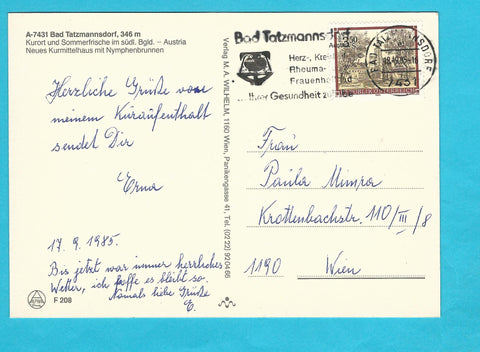 A-7431 Bad Tatzmannsdorf, 346 m
Kurort und Sommerfrische im südl. Bgld. – Austria
Neues Kurmittelhaus mit Nymphenbrunnen
Herzliche Grüße von
meinem Kuraufenthalt
sendet Dir
Erna
17. 9. 1985.
Bis jetzt war immer herrliches
Wetter, ich hoffe es bleibt so.
Nomals liebe Grüße
E.
F 208
Verlag M. A. WILHELM, 1160 Wien, Panikengasse 41, Tel. (02 22) 92 04 66
Bad Tatzmannsdorf
Herz-, Kre
Rheuma-
Frauenheilbad
Ihrer Gesundheit zuliebe
3.50
REPUBLIK ÖSTERREICH
BAD TATZMANNSDORF
7431
Frau
Paula Mimra
Krottenbachstr. 110/III/8
1190 Wien